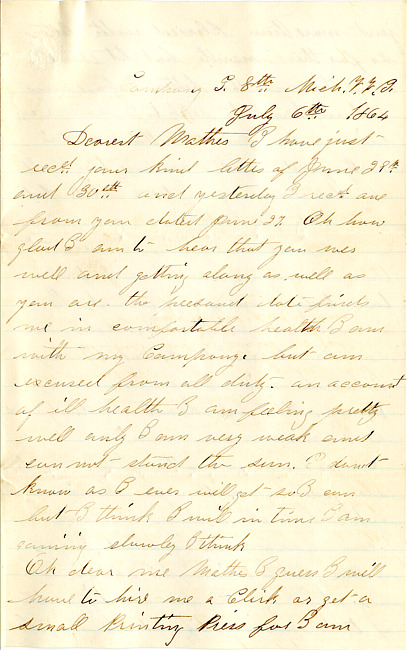 Company I. 8th Mich. V.V.I.
July 6th 1864
Dearest Mother I have just
recd your kind letter of June 28th
and 30th and yesterday I recd one
from you dated June 27. Oh how
glad I am to hear that you was
well and getting along as well as
you are. the present date finds
me in comfortable health I am
with my Company. but am
excused from all duty. on account
of ill health I am feeling pretty
well only I am very weak and
can not stand the sun. I dont
know as I ever will get so I can
but I think I will in time I am
gaining slowly I think
Oh dear me Mother I guess I will
have to hire me a Clirk or get a
small Printing Press for I am